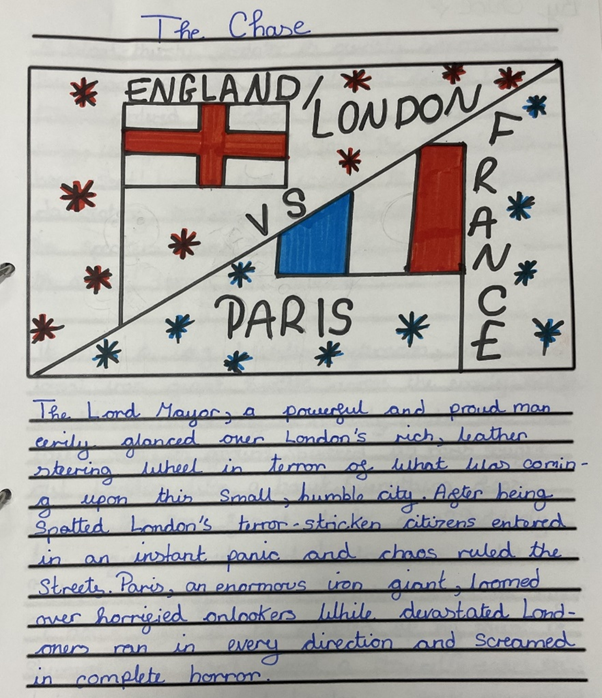 The Chase
ENGLAND/
LONDON
VS
FRANCE
PARIS
The Lord Mayor, a powerful and proud man
eerily glanced over London's rich, leather
steering wheel in terror of what was comin-
g upon this small, humble city. After being
spotted London's terror-stricken citizens entered
in an instant panic and chaos ruled the
Streets. Paris, an enormous iron giant, loomed
over horrified onlookers While devastated Lond-
oners ran in every direction and screamed
in complete horror.